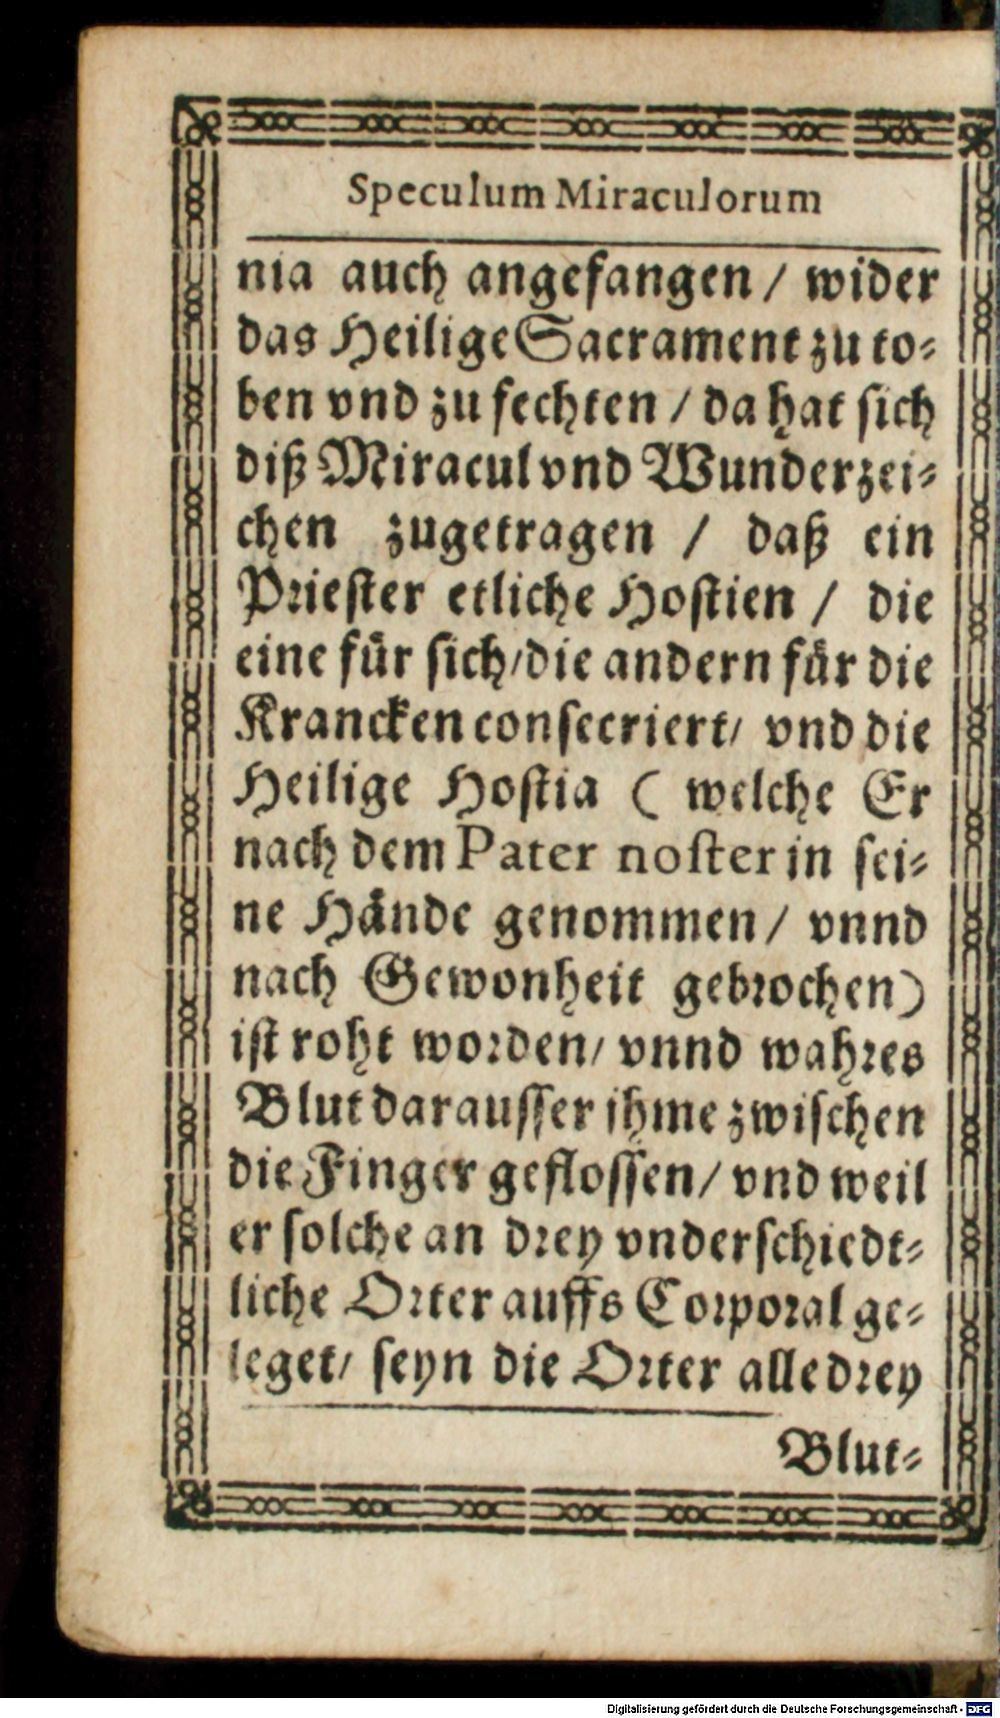 Speculum Miraculorum
nia auch angefangen / wider
das Heilige Sacrament zu to-
ben vnd zu fechten / da hat sich
diß Miracul vnd Wunderzei-
chen zugetragen / daß ein
Priester etliche Hostien / die
eine für sich/die andern für die
Krancken consecriert/ vnd die
Heilige Hostia ( welche Er
nach dem Pater noster in sei-
ne Hände genommen/ vnnd
nach Gewonheit gebrochen)
ist roht worden/ vnnd wahres
Blut darausser ihme zwischen
die Finger geflossen/ vnd weil
er solche an drey vnderschiedt-
liche Orter auffs Corporal ge-
leget/ seyn die Orter alle drey
Blut-
Digitalisierung gefördert durch die Deutsche Forschungsgemeinschaft - DFG